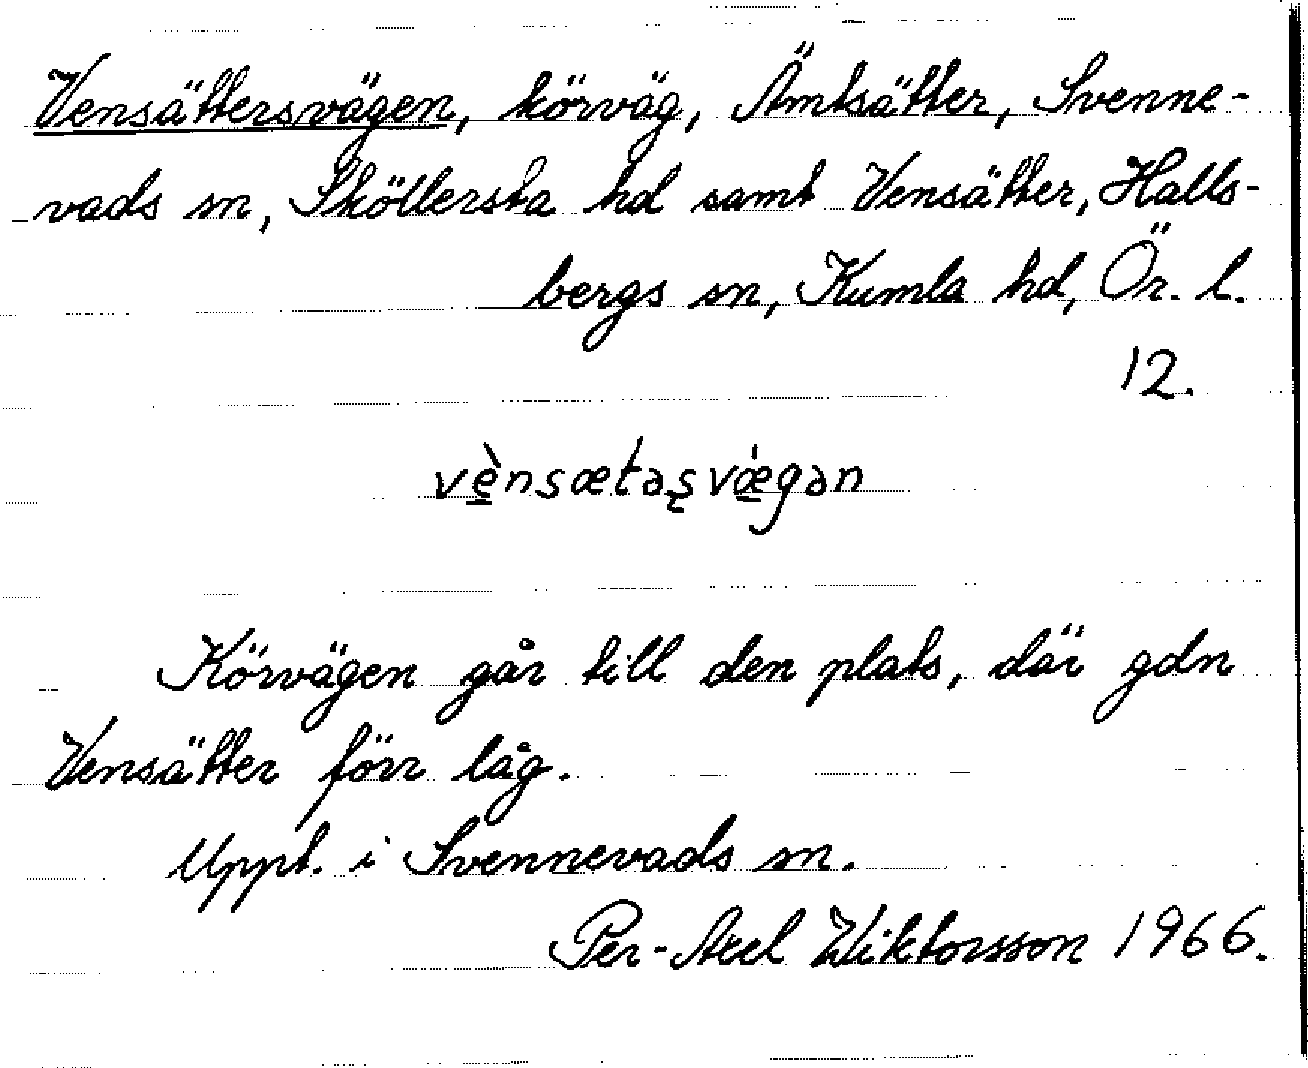 Vensättersvägen, körväg, Ämtsätter, Svenne-
vads sn, Sköllersta hd samt Vensätter, Halls-
bergs sn, Kumla hd, Ör. l.
12.
vè̠nsætəʂvǽ̠gən
Körvägen går till den plats, där gdn
Vensätter förr låg.
Uppt. i Svennevads sn.
Per-Axel Wiktorsson 1966.